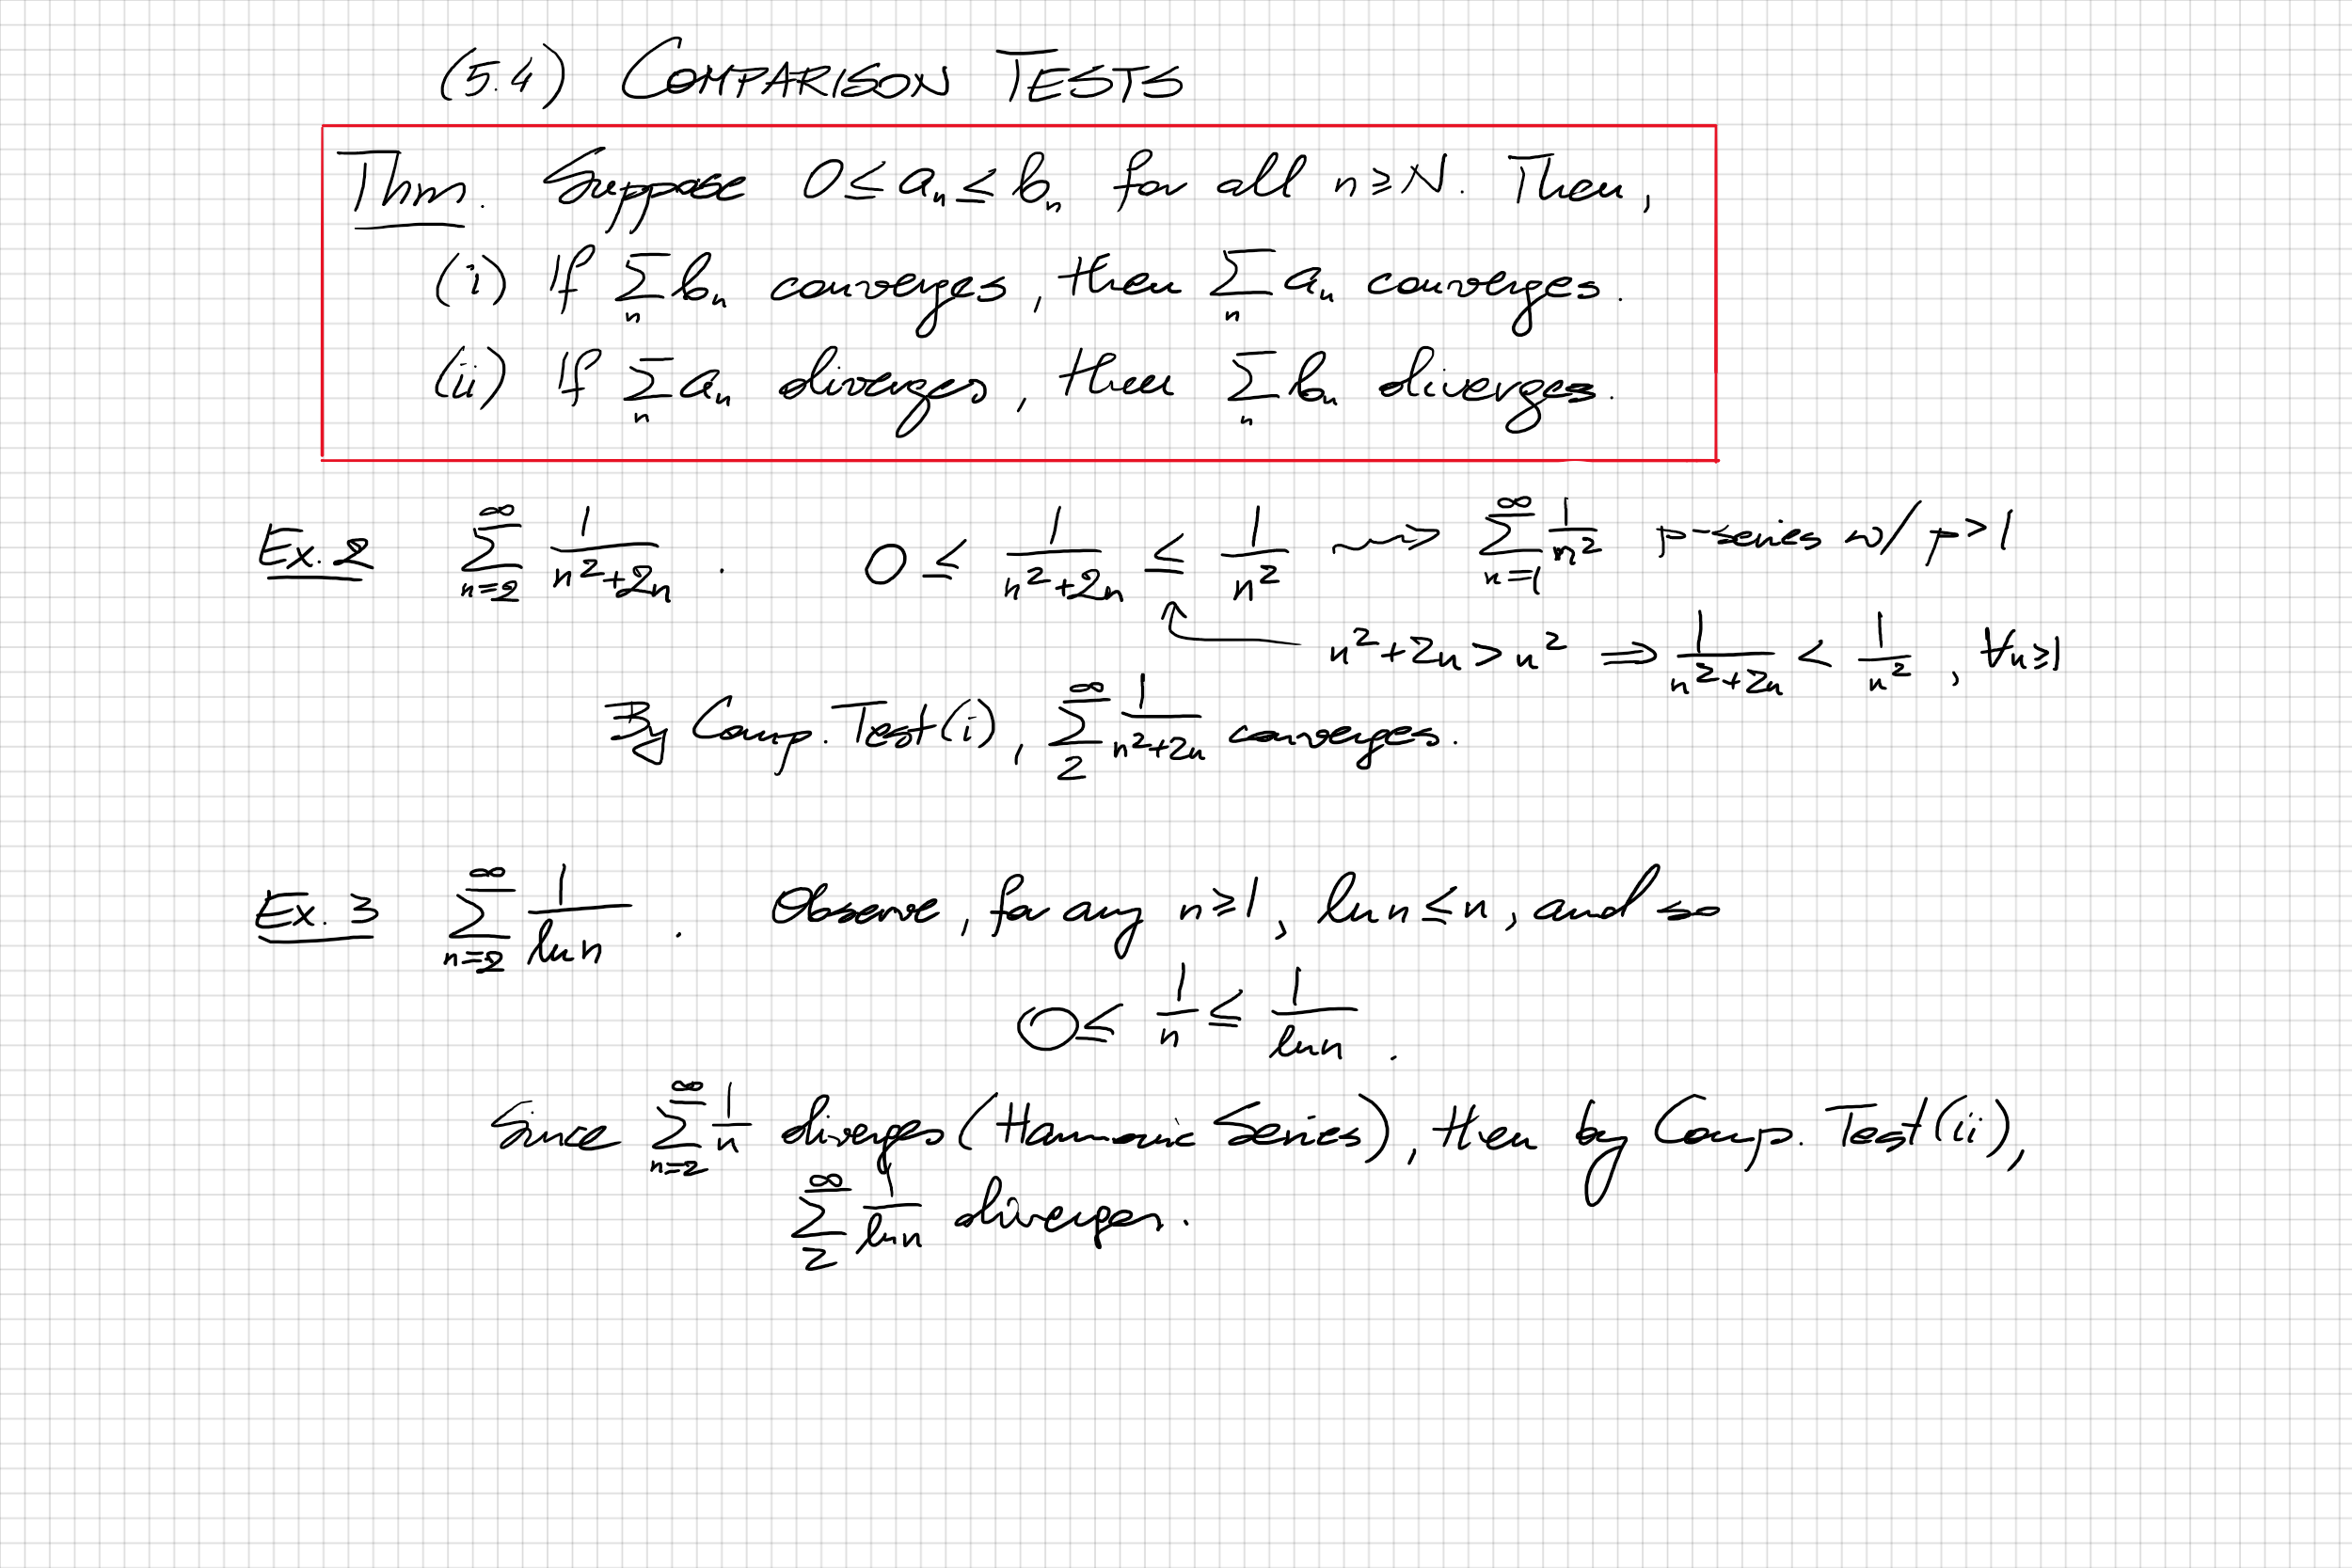 (5.4) COMPARISON TESTS
Thm. Suppose 0 ≤ aₙ ≤ bₙ for all n ≥ N. Then,
(i) If ∑ₙ bₙ converges, then ∑ₙ aₙ converges.
(ii) If ∑ₙ aₙ diverges, then ∑ₙ bₙ diverges.
Ex. 2 ∑_{n=2}^{∞} 1/(n²+2n) . 0 ≤ 1/(n²+2n) ≤ 1/n² ⇝ ∑_{n=1}^{∞} 1/n² p-series w/ p>1
n²+2n > n² ⟹ 1/(n²+2n) < 1/n² , ∀n≥1
By Comp. Test (i), ∑_{2}^{∞} 1/(n²+2n) converges.
Ex. 3 ∑_{n=2}^{∞} 1/ln n . Observe, for any n ≥ 1, ln n ≤ n, and so
0 ≤ 1/n ≤ 1/ln n .
Since ∑_{n=2}^{∞} 1/n diverges (Harmonic Series), then by Comp. Test (ii),
∑_{2}^{∞} 1/ln n diverges.